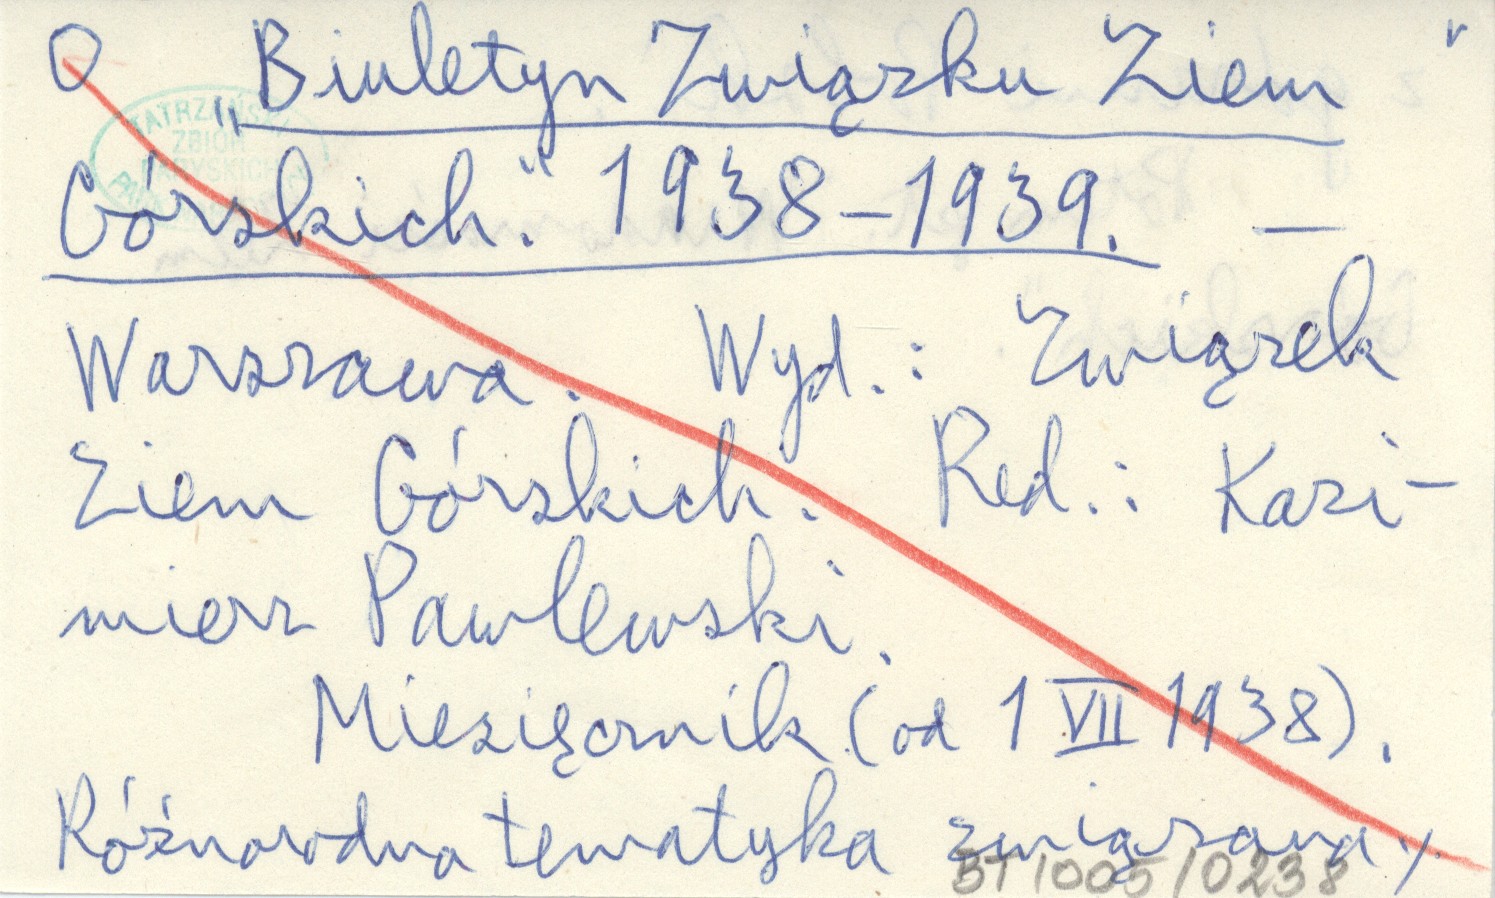 O „Biuletyn Związku Ziem
Górskich." 1938-1939. —
Warszawa. Wyd.: Związek
Ziem Górskich. Red.: Kazi-
mierz Pawlewski.
Miesięcznik (od 1 VII 1938).
Różnorodna tematyka związana ./.
BT/005/0238
TATRZAŃSKI
ZBIÓR
PARYSKICH